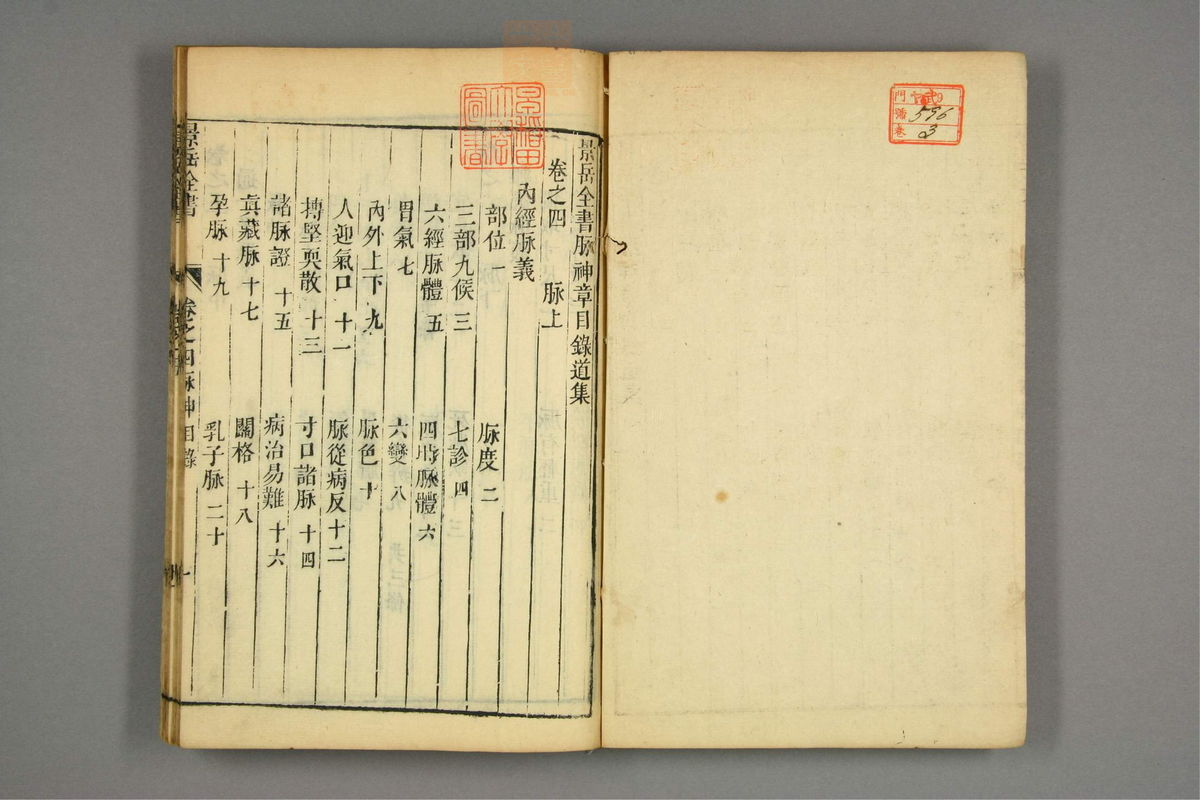 景岳全書脉神章目錄道集
卷之四 脉上
內經脉義
部位一 脉度二
三部九候三 七診四
六經脉體五 四時脉體六
胃氣七 六變八
內外上下九 脉色十
人迎氣口十一 脉從病反十二
搏堅耎散十三 寸口諸脉十四
諸脉證十五 病治易難十六
真藏脉十七 關格十八
孕脉十九 乳子脉二十
景岳全書 卷之四脉神目錄 一
門
號 596
卷 3